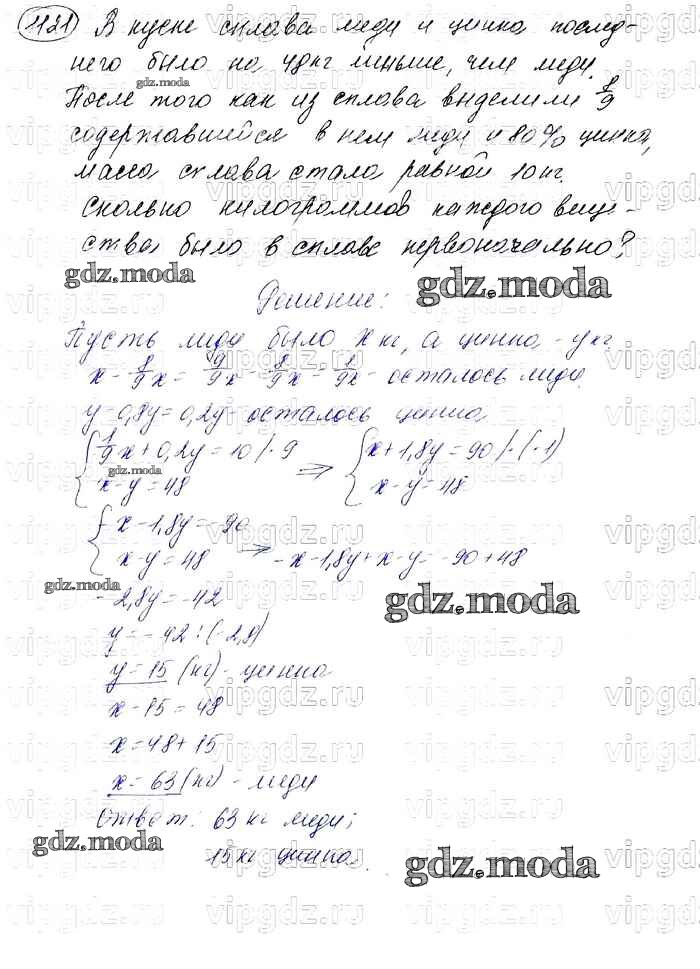 1121 В куске сплава меди и цинка послед-
него было на 48 кг меньше, чем меди.
gdz.moda
После того как из сплава выделили 8/9
содержавшейся в нем меди и 80% цинка,
масса сплава стала равной 10 кг.
Сколько килограммов каждого веще-
ства было в сплаве первоначально?
gdz.moda
gdz.moda
Решение:
Пусть меди было x кг, а цинка - y кг.
x - 8/9x = 9/9x - 8/9x = 1/9x - осталось меди
y - 0,8y = 0,2y - осталось цинка
{ 1/9x + 0,2y = 10 |·9 => { x + 1,8y = 90 |·(-1)
gdz.moda
x - y = 48 x - y = 48
{ -x - 1,8y = -90
x - y = 48 => -x - 1,8y + x - y = -90 + 48
gdz.moda
-2,8y = -42
gdz.moda
y = -42 : (-2,8)
y = 15 (кг) - цинка
x - 15 = 48
x = 48 + 15
x = 63 (кг) - меди
Ответ: 63 кг меди;
gdz.moda
15 кг цинка.
gdz.moda
vipgdz.ru